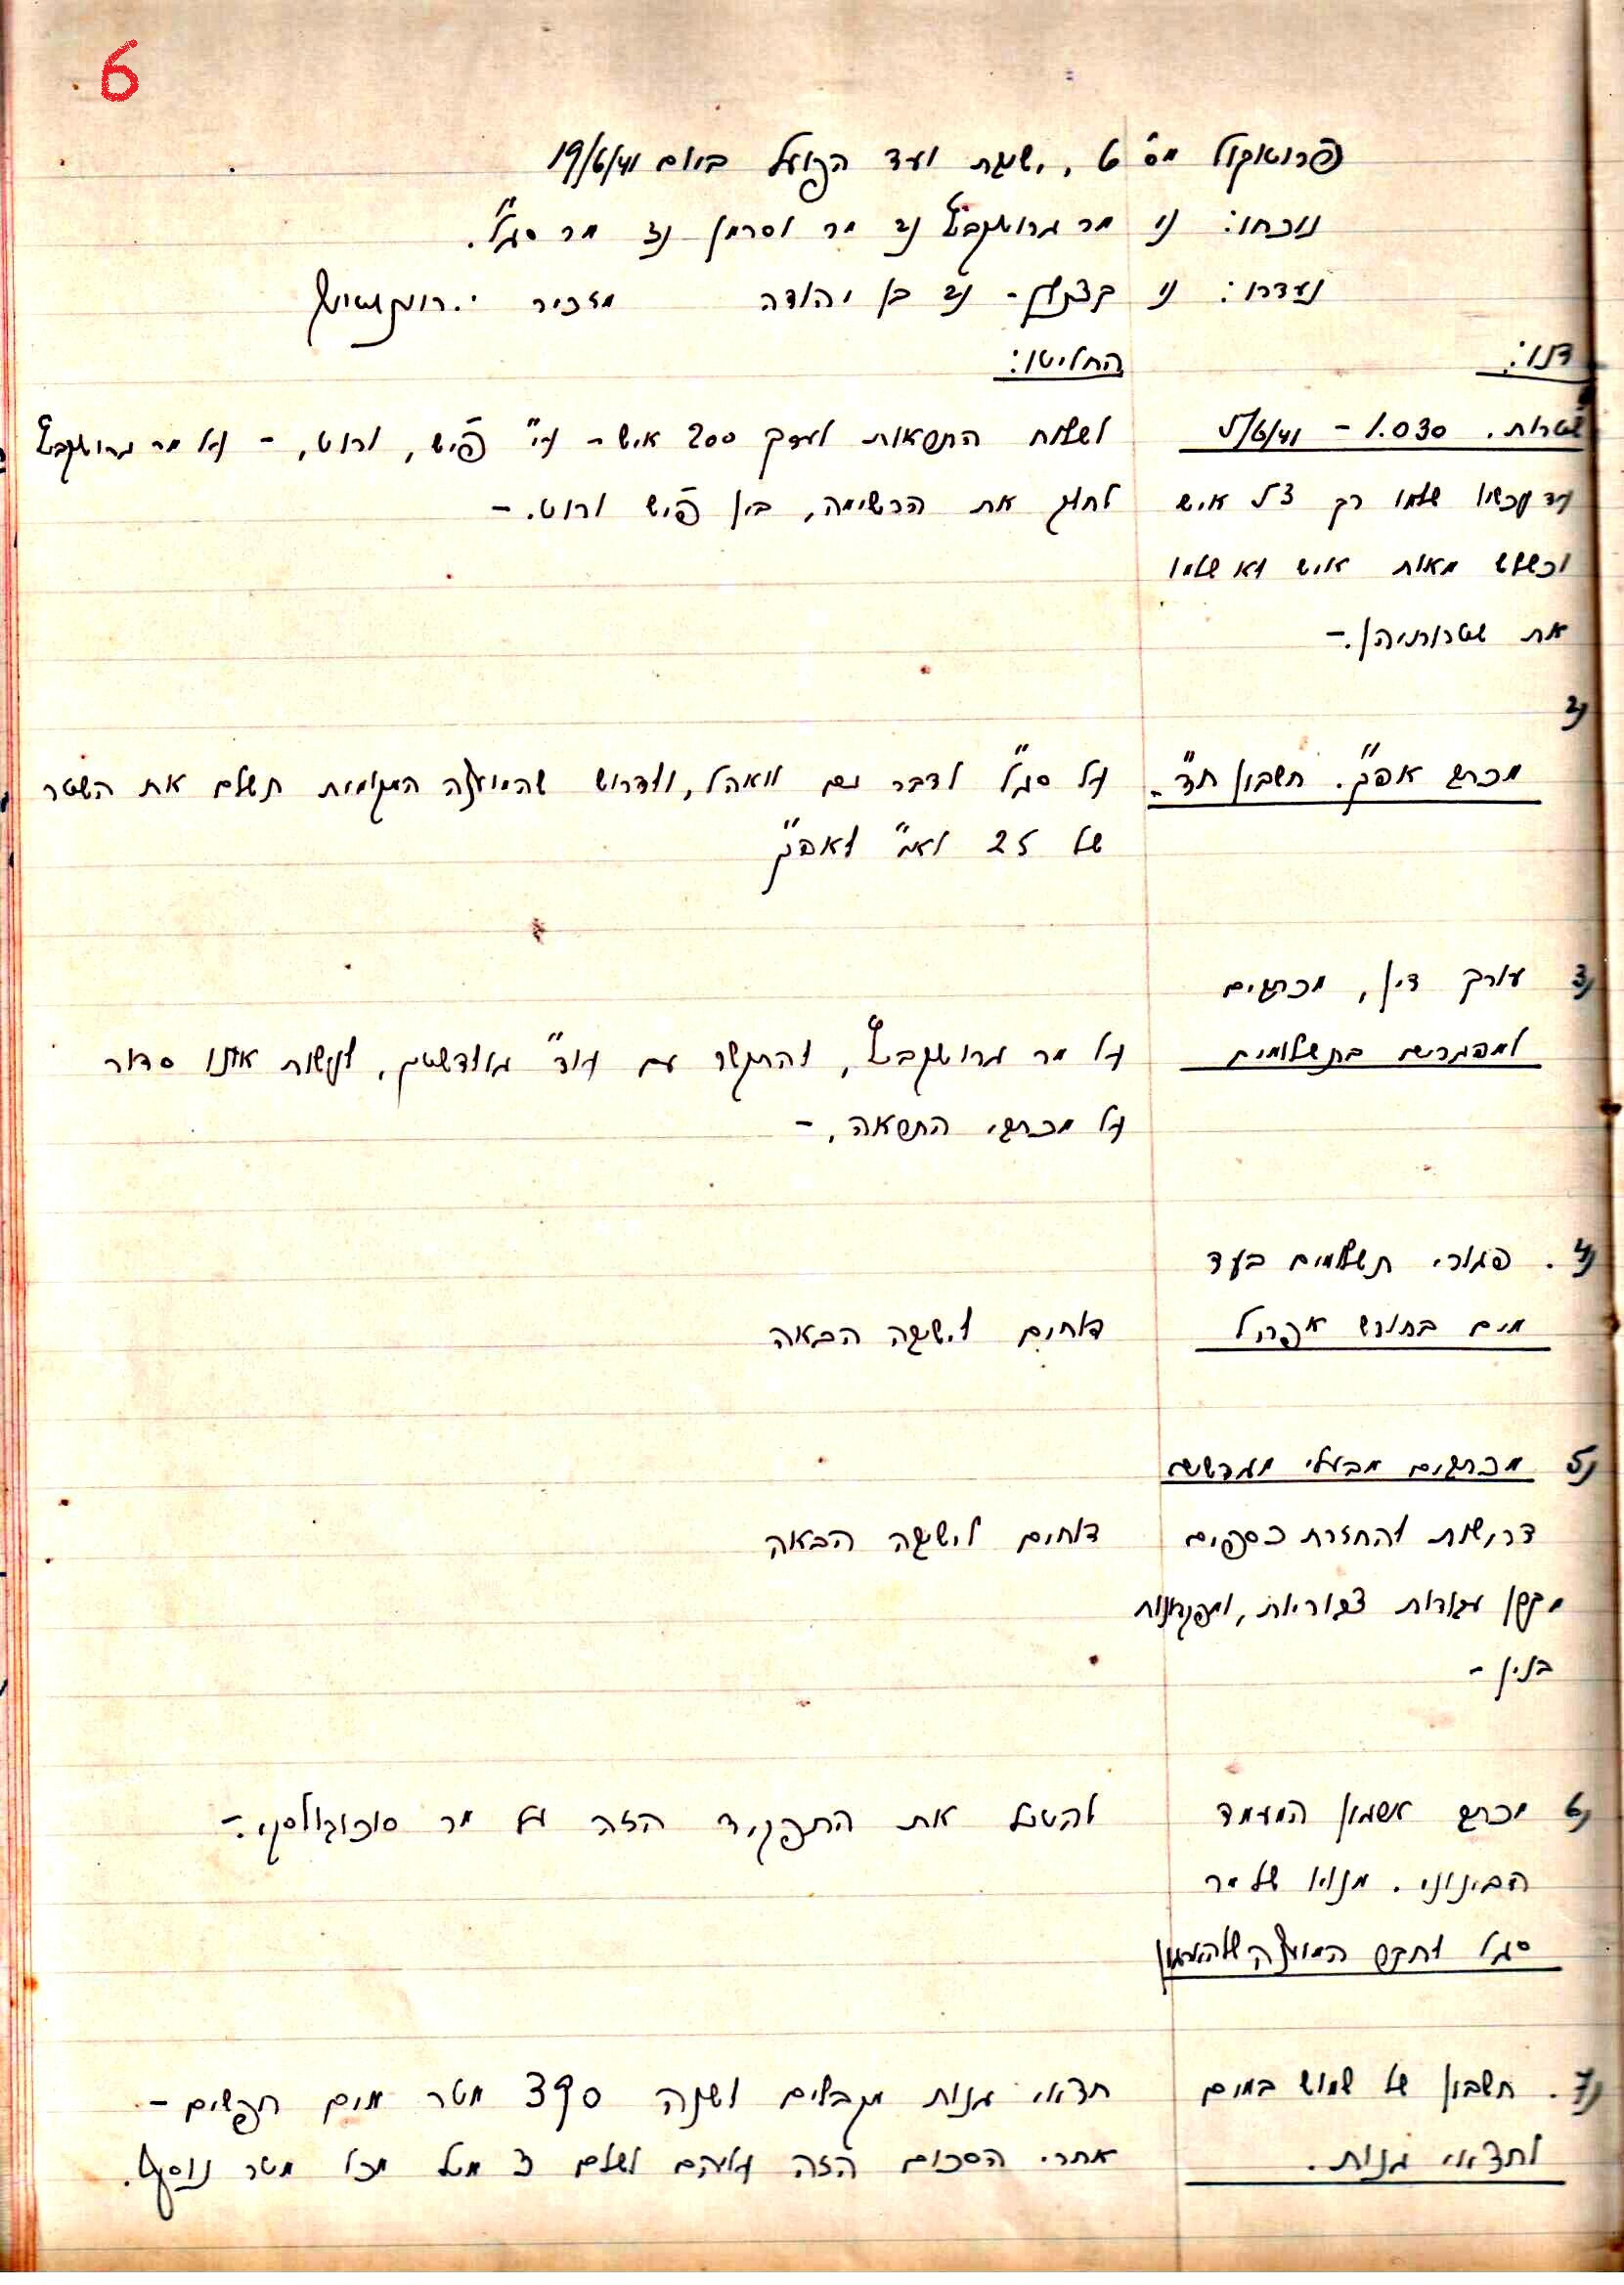 6
פרוטוקול מס' 6, ישיבת ועד הפועל ביום 19/6/41
נוכחו: 1) מר גרוטקביץ 2) מר וסרמן 3) מר סגל.
נעדרו: 1) 2) בן יהודה מזכיר י.
דנו: החליטו:
שטרות. 1.030 – 5/6/41
עד עכשיו שלמו רק 35 איש
וכשלש מאות איש לא שלמו
את שטרותיהן. –
לשלוח התראות לערך 200 איש – ע"י פיש, ורוט, – על מר גרוטקביץ
לחלק את הרשימה, בין פיש ורוט. –
2)
מכתב אפ"ק. חשבון חד"
על סגל לדבר עם וואהל, ולדרוש שהמועצה המקומית תשלם את השטר
של 25 לא"י לאפ"ק
3) עורך דין, מכתבים
למפגרים בתשלומים
על מר גרוטקביץ, להתקשר עם עו"ד גולדשטין, לעשות אתנו סדור
על מכתבי התראה. –
4). פגורי תשלומים בעד
מים בחודש אפריל
דוחים לישיבה הבאה
5) מכתבים מבעלי מגרשים
דרישות להחזרת כספים
מקרן עבודות צבוריות, ומפקדונות
בנין –
דוחים לישיבה הבאה
6) מכתב ארגון המעמד
הבינוני. מנויו של מר
סגל לחבר המועצה של הארגון
להטיל את התפקיד הזה על מר סוכובולסקי. –
7). חשבון של שמוש במים
לחצאי גנות.
חצאי גנות מקבלים לשנה 390 מטר מים חפשים –
אחרי הסכום הזה עליהם לשלם 3 מיל מכל מטר נוסף.